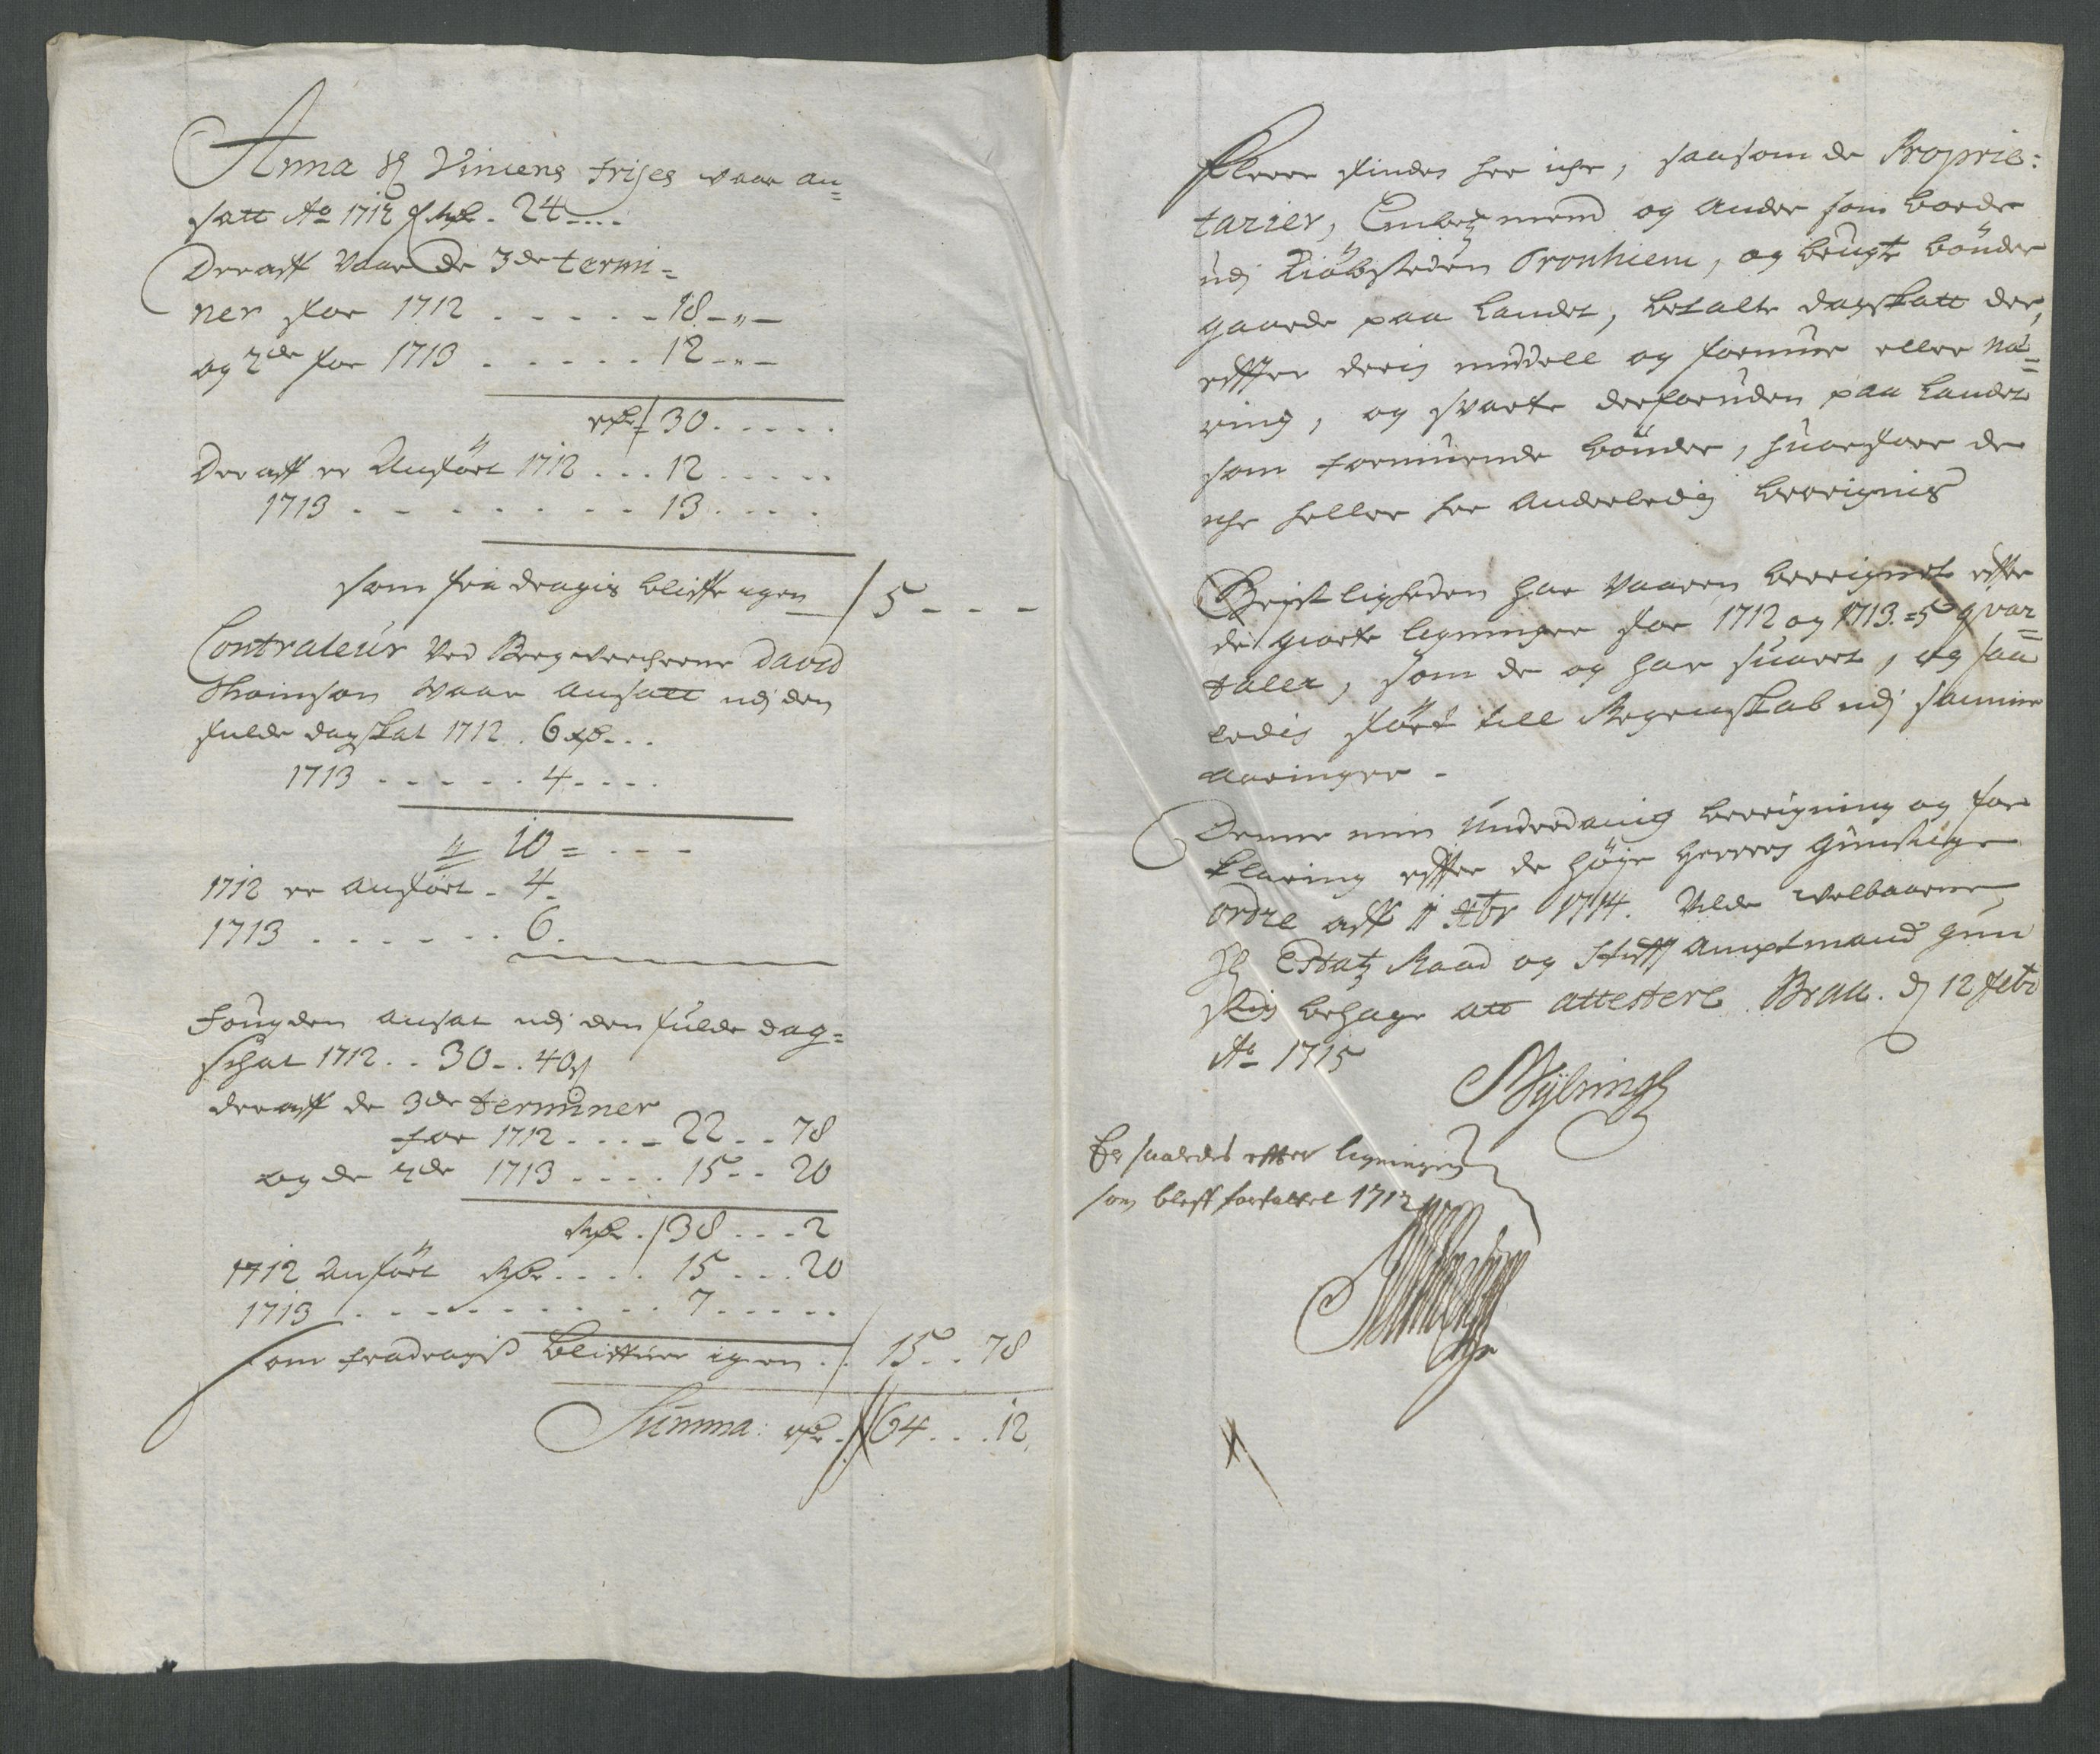 Anna Hr Viniens Friises waar an¬
satt Ao 1712 f Rdr. 24 - - -
Deraff vaar de 3de termi¬
ner for 1712 - - - - - 18 - „ -
og 2de for 1713 - - - - - 12 - „ -
rdr / 30 - - - -
Deraff er Anført 1712 - - - 12 - - - -
1713 - - - - - - - - 13 - - -
som fradragis blifr igen / 5 - - -
Contraleur ved Bergverckerne David
Thoinson waar ansatt udj den
fulde dagskat 1712 . 6 rd - -
1713 - - - - - 4 - - -
10 = - - -
1712 er anført - 4 -
1713 - - - - - - 6 -
Fougden ansat udj den fulde dag¬
schat 1712 - - 30 - - 40 s
deraff de 3de terminer
for 1712 - - - - 22 - - 78
og de 2de 1713 - - - - 15 - - 20
Rdr . / 38 - - - 2
1712 Anført Rdr - - - - 15 - - - 20
1713 - - - - - - - - - 7 - - - -
som fradragis blifuer igen - / 15 - - 78
Summa: rdr - // 64 - - - 12
Fleere findes her iche, saasom de Proprie:
tarier, Embetzmend og Andre som boede
udj Kiöbsteden Tronhiem, og brugte bönder
gaarde paa Landet, betalte dagskatt der,
effter deris middell og formue eller næ¬
ring, og svarte derforuden paa Landet
som formuende bönder, huorfore de
iche heller her anderledis beregnis
Geistligheden har vaaren beregnet effter
de giorte ligninger for 1712 og 1713 = 5 qvar¬
taler, som de og har suaret, og saa
ledis fört till Regenskab udj samme
aaringer -
Denne min underdanig beregning og for
klaring effter de höye herrers gunstige
ordre aff 11 Xbr 1714. Vilde welbaarne
Hr Etatz Raad og Stifft Amptmand gun
stig behage att attestere Braa. d 12 febr
Ao 1715
Er saaledes efter ligningen
som bleff forfattet 1712